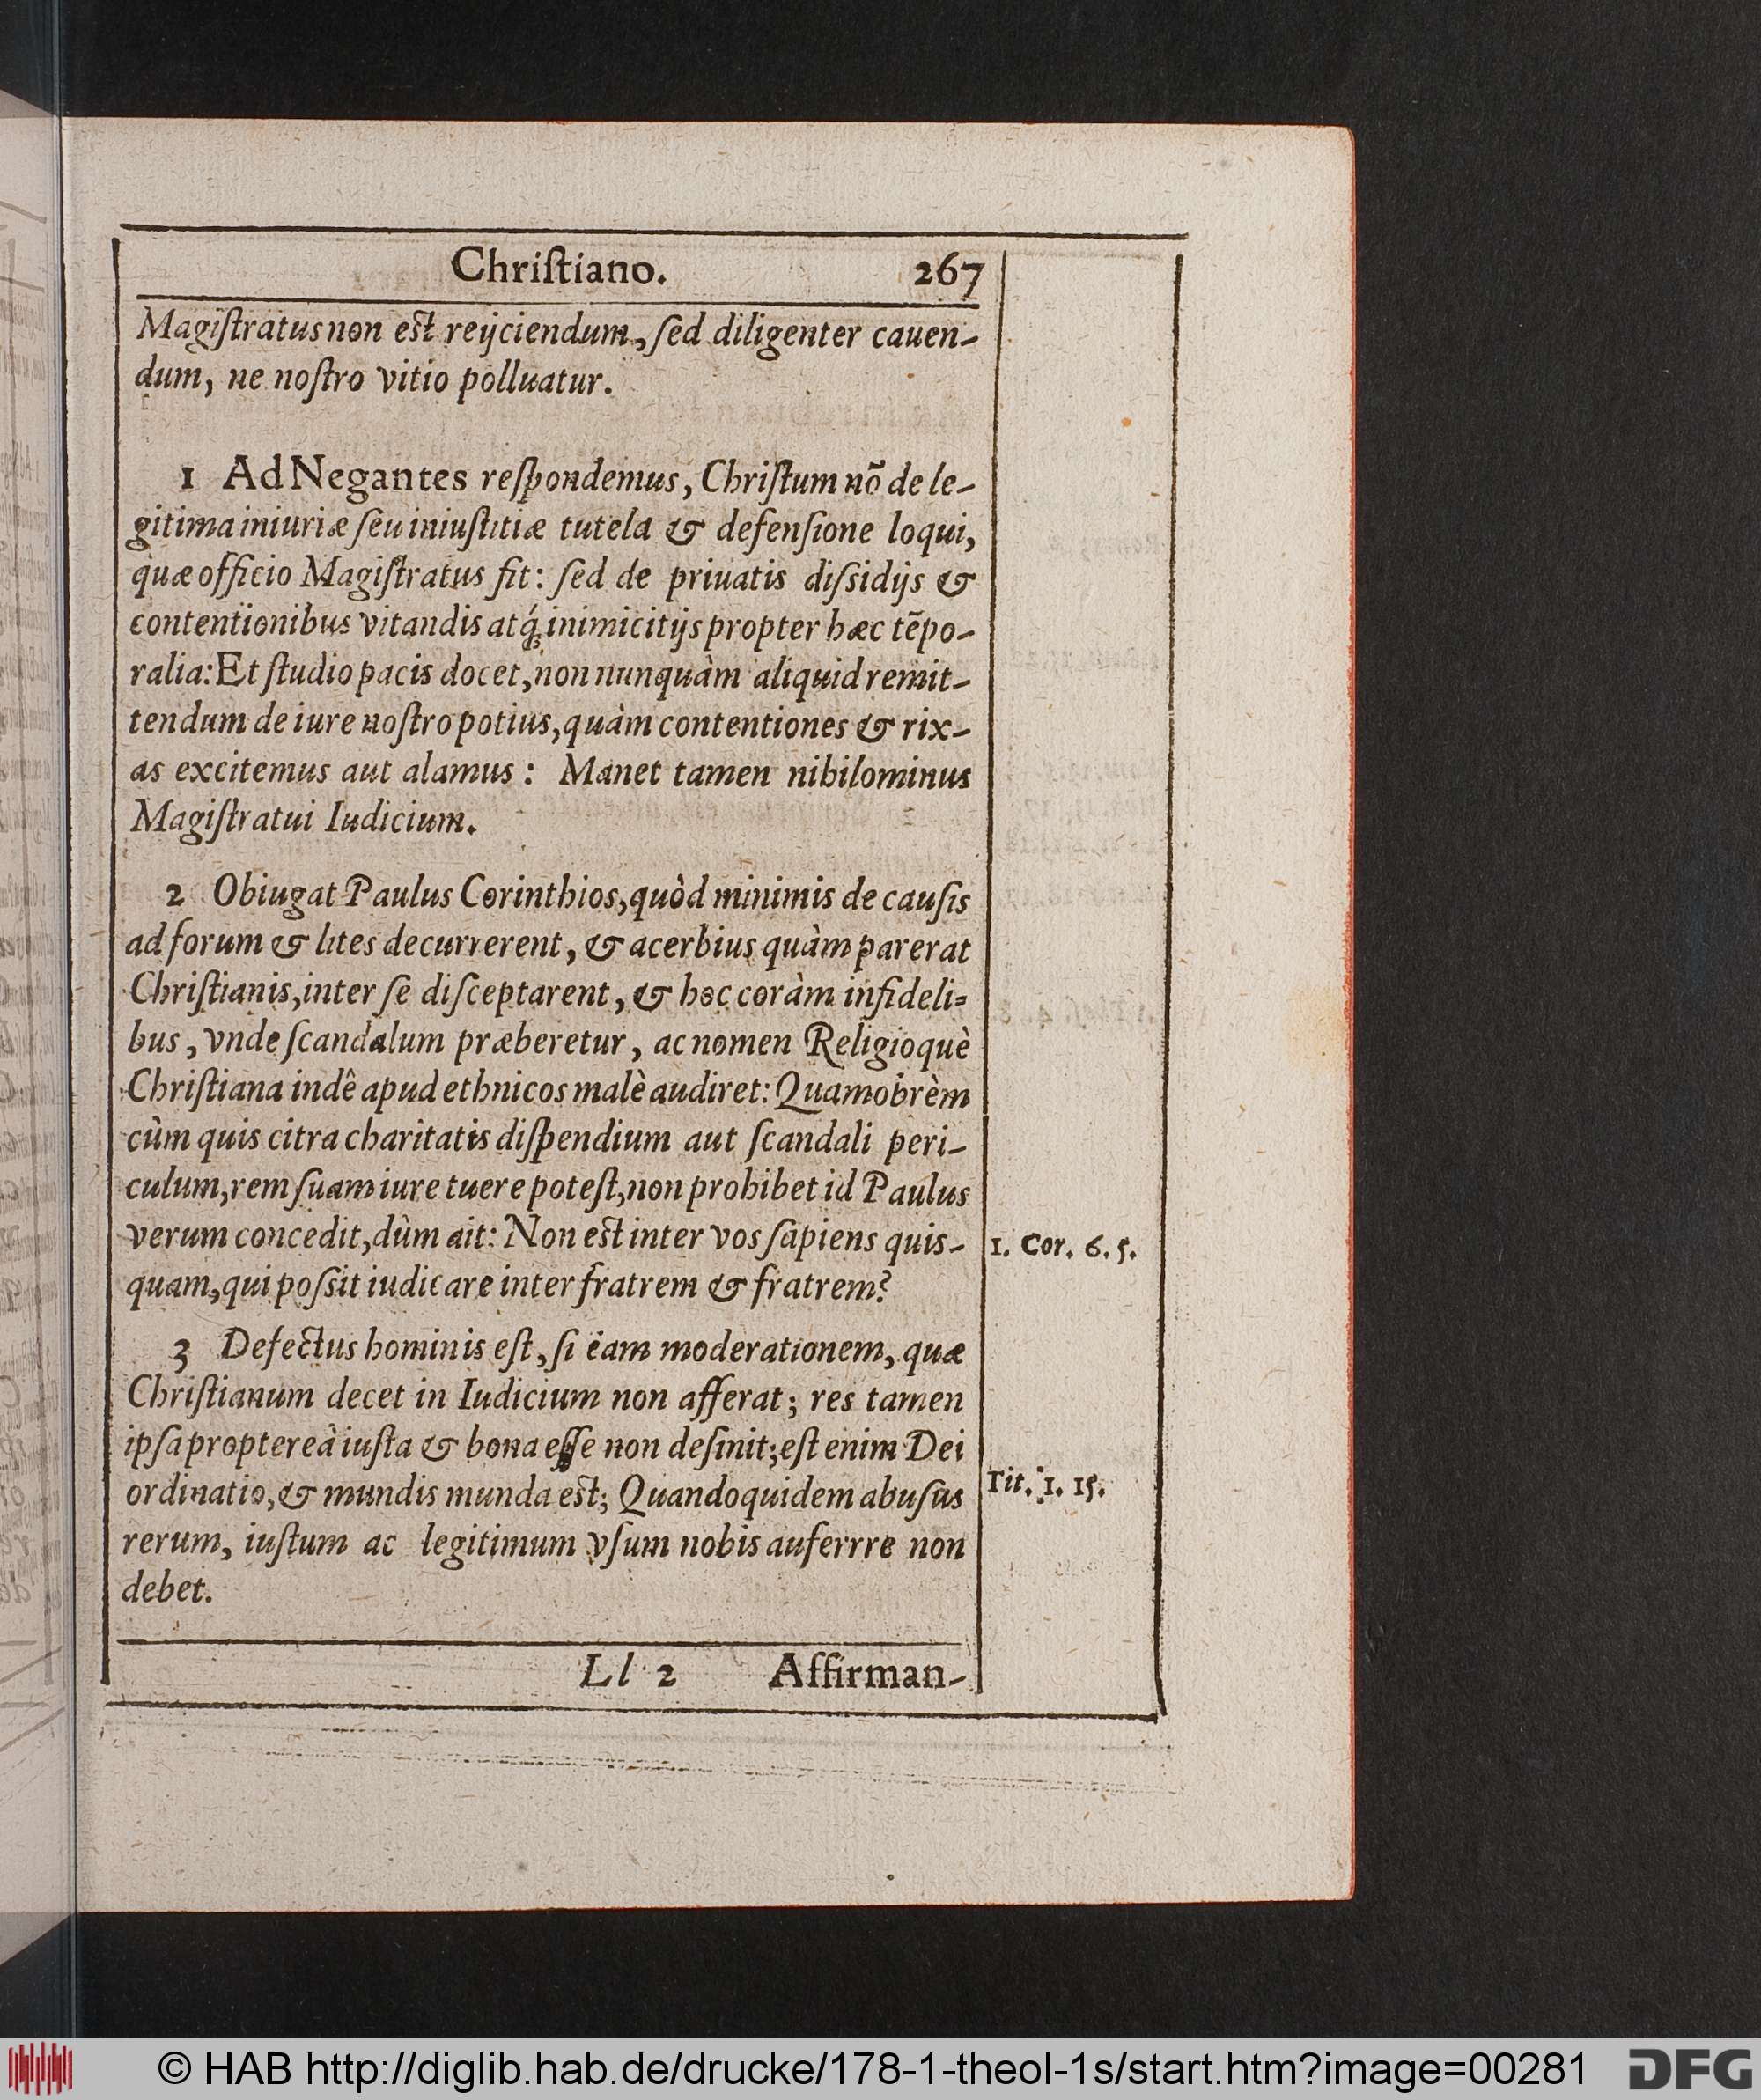 Chriſtiano. 267
Magiſtratus non eſt reijciendum, ſed diligenter cauen-
dum, ne noſtro vitio polluatur.
1 Ad Negantes reſpondemus, Chriſtum nõ de le-
gitima iniuriæ ſeu iniuſtitiæ tutela & defenſione loqui,
quæ officio Magiſtratus fit: ſed de priuatis diſsidijs &
contentionibus vitandis atq́; inimicitijs propter hæc tẽpo-
ralia: Et ſtudio pacis docet, non nunquàm aliquid remit-
tendum de iure noſtro potius, quàm contentiones & rix-
as excitemus aut alamus: Manet tamen nihilominus
Magiſtratui Iudicium.
2 Obiugat Paulus Corinthios, quòd minimis de cauſis
ad forum & lites decurrerent, & acerbius quàm parerat
Chriſtianis, inter ſe diſceptarent, & hoc coràm infideli-
bus, vnde ſcandalum præberetur, ac nomen Religioquè
Chriſtiana indê apud ethnicos malè audiret: Quamobrèm
cùm quis citra charitatis diſpendium aut ſcandali peri-
culum, rem ſuam iure tuere poteſt, non prohibet id Paulus
verum concedit, dùm ait: Non eſt inter vos ſapiens quis-
1. Cor. 6. 5.
quam, qui poſsit iudicare inter fratrem & fratrem?
3 Defectus hominis eſt, ſi eam moderationem, quæ
Chriſtianum decet in Iudicium non afferat; res tamen
ipſa proptereà iuſta & bona eſſe non deſinit; eſt enim Dei
ordinatio, & mundis munda eſt; Quandoquidem abuſus
Tit. 1. 15.
rerum, iuſtum ac legitimum vſum nobis auferrre non
debet.
Ll 2 Affirman-
© HAB http://diglib.hab.de/drucke/178-1-theol-1s/start.htm?image=00281
DFG